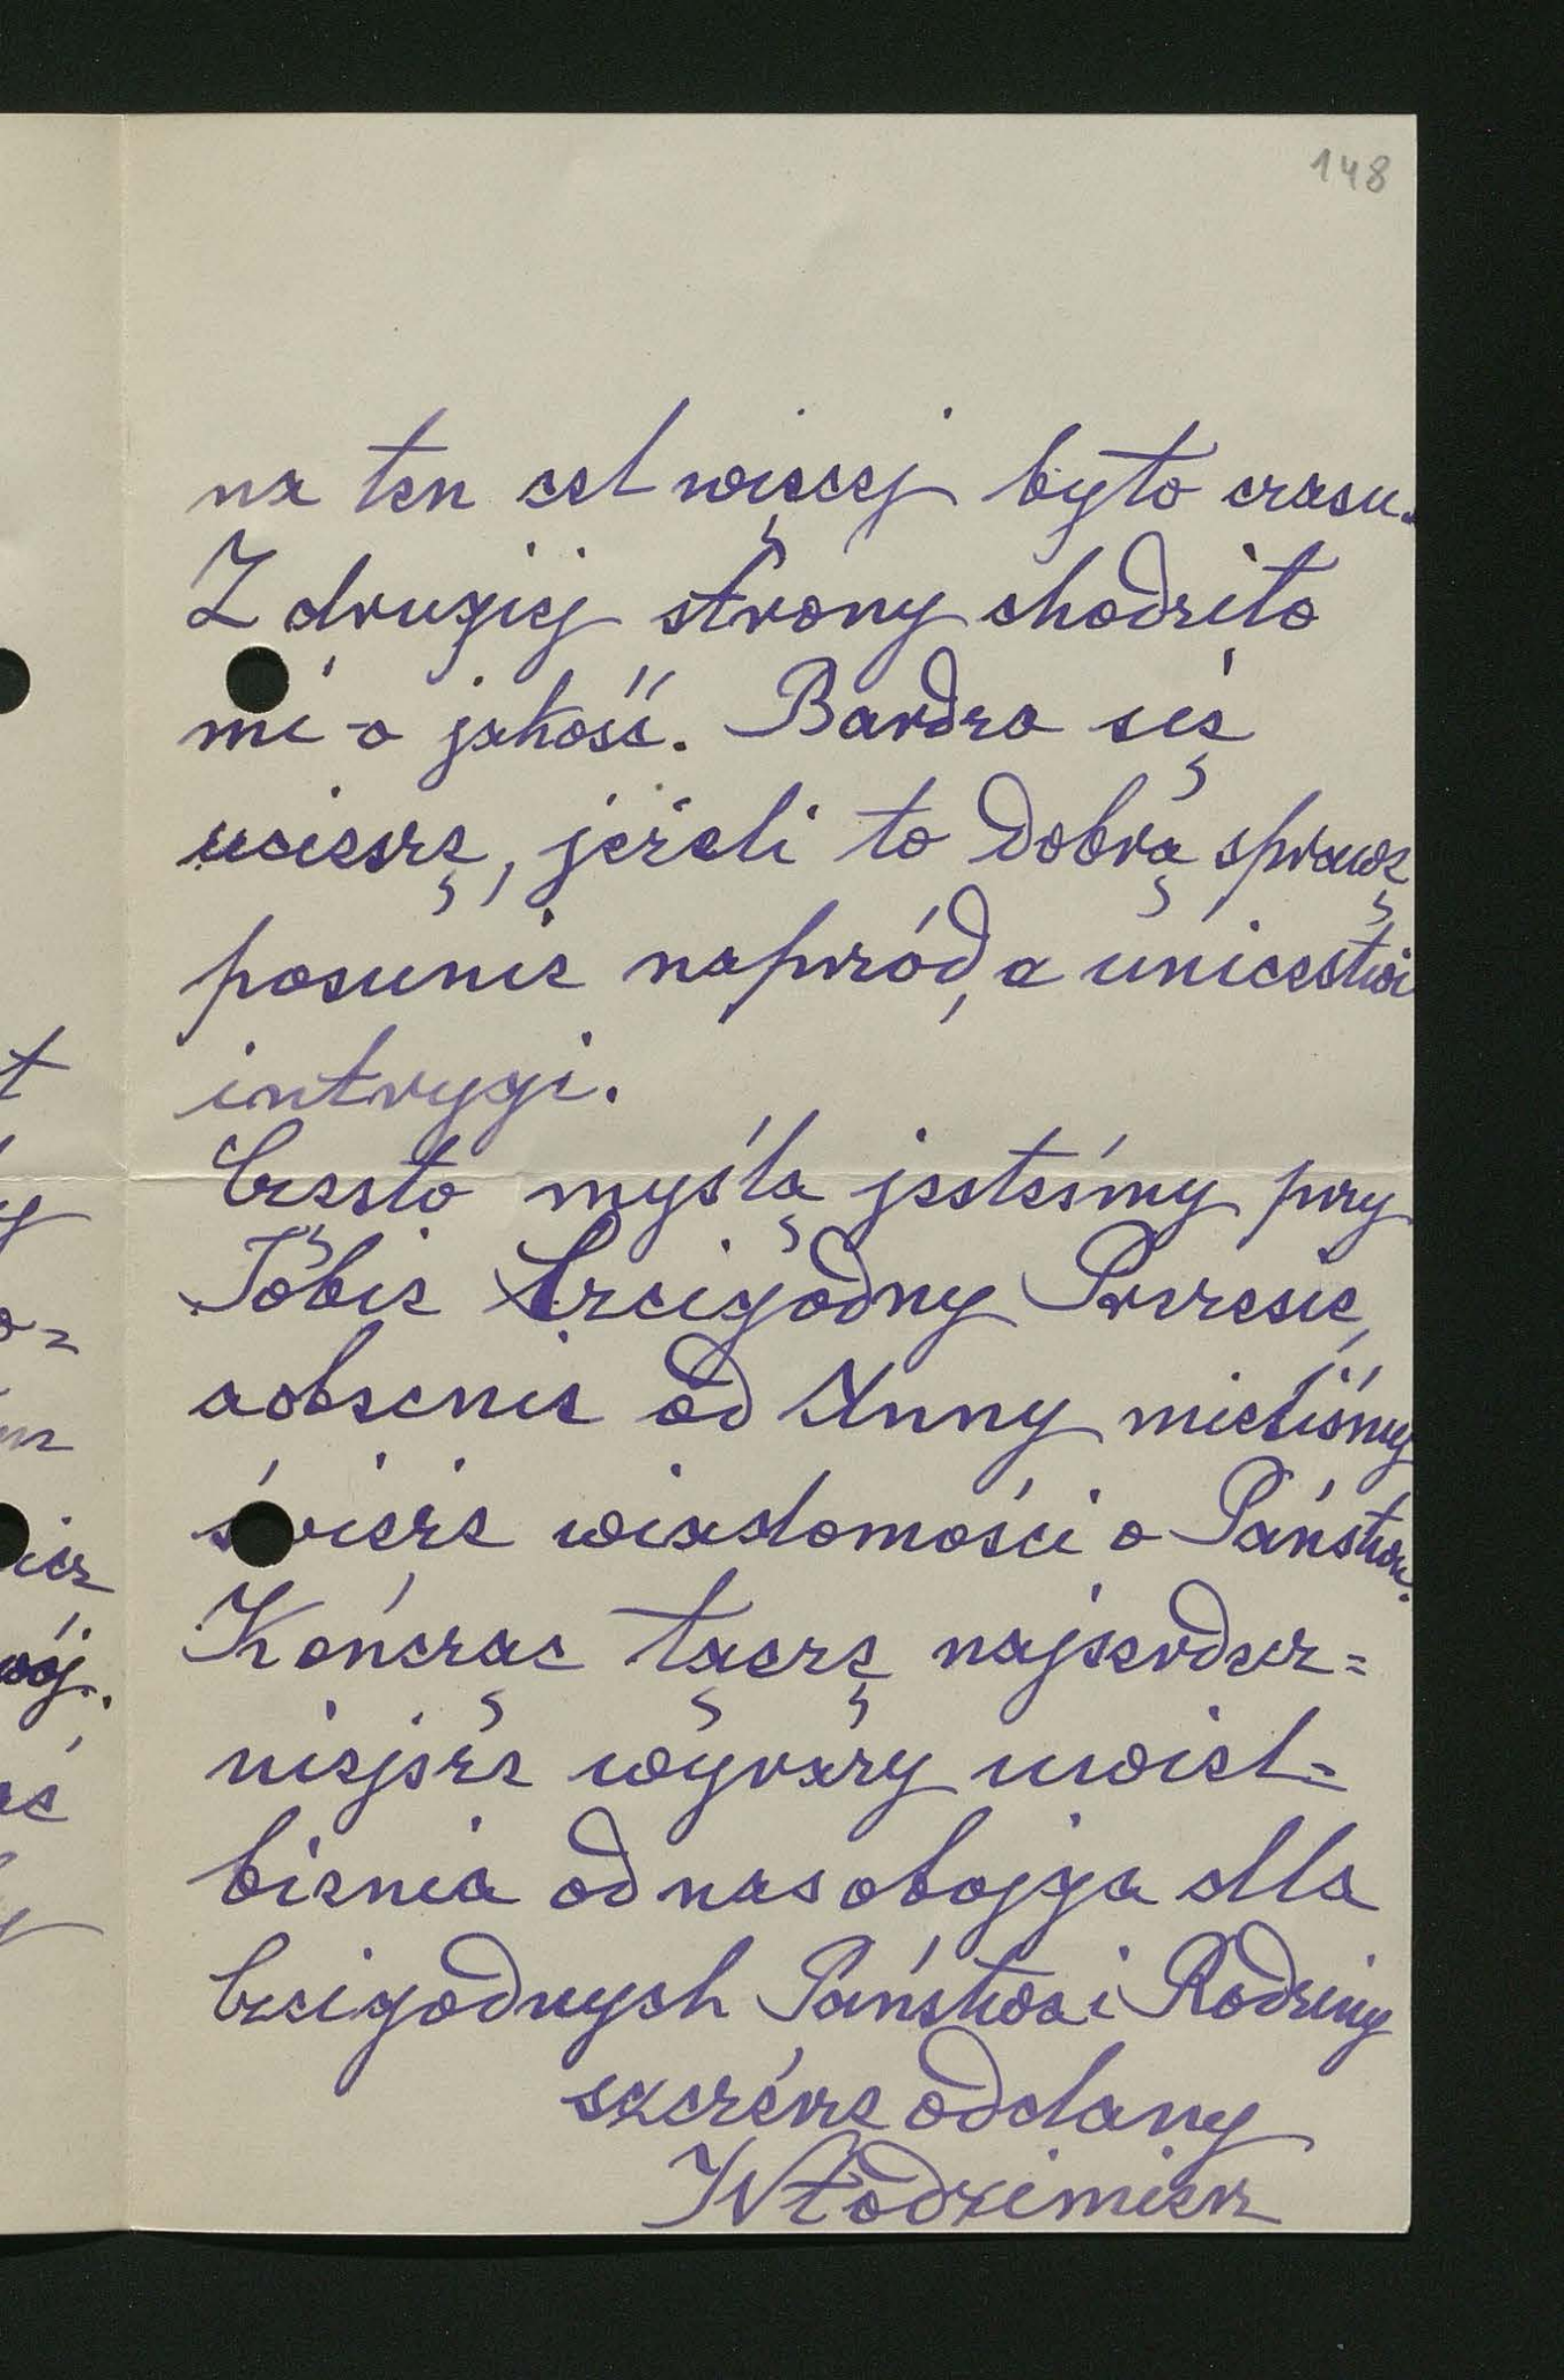 148
na ten cel więcej było czasu.
Z drugiej strony chodziło
mi o jakość. Bardzo się
ucieszę, jeżeli to dobrą sprawę
posunie naprzód, a unicestwi
intrygi.
Często myślą jesteśmy przy
Tobie Czcigodny Prezesie,
a obecnie od Anny mieliśmy
świeże wiadomości o Państwu.
Kończąc łączę najserdecz=
niejsze wyrazy uwiel=
bienia od nas obojga dla
Czcigodnych Państwa i Rodziny
szczérze oddany
Włodzimierz